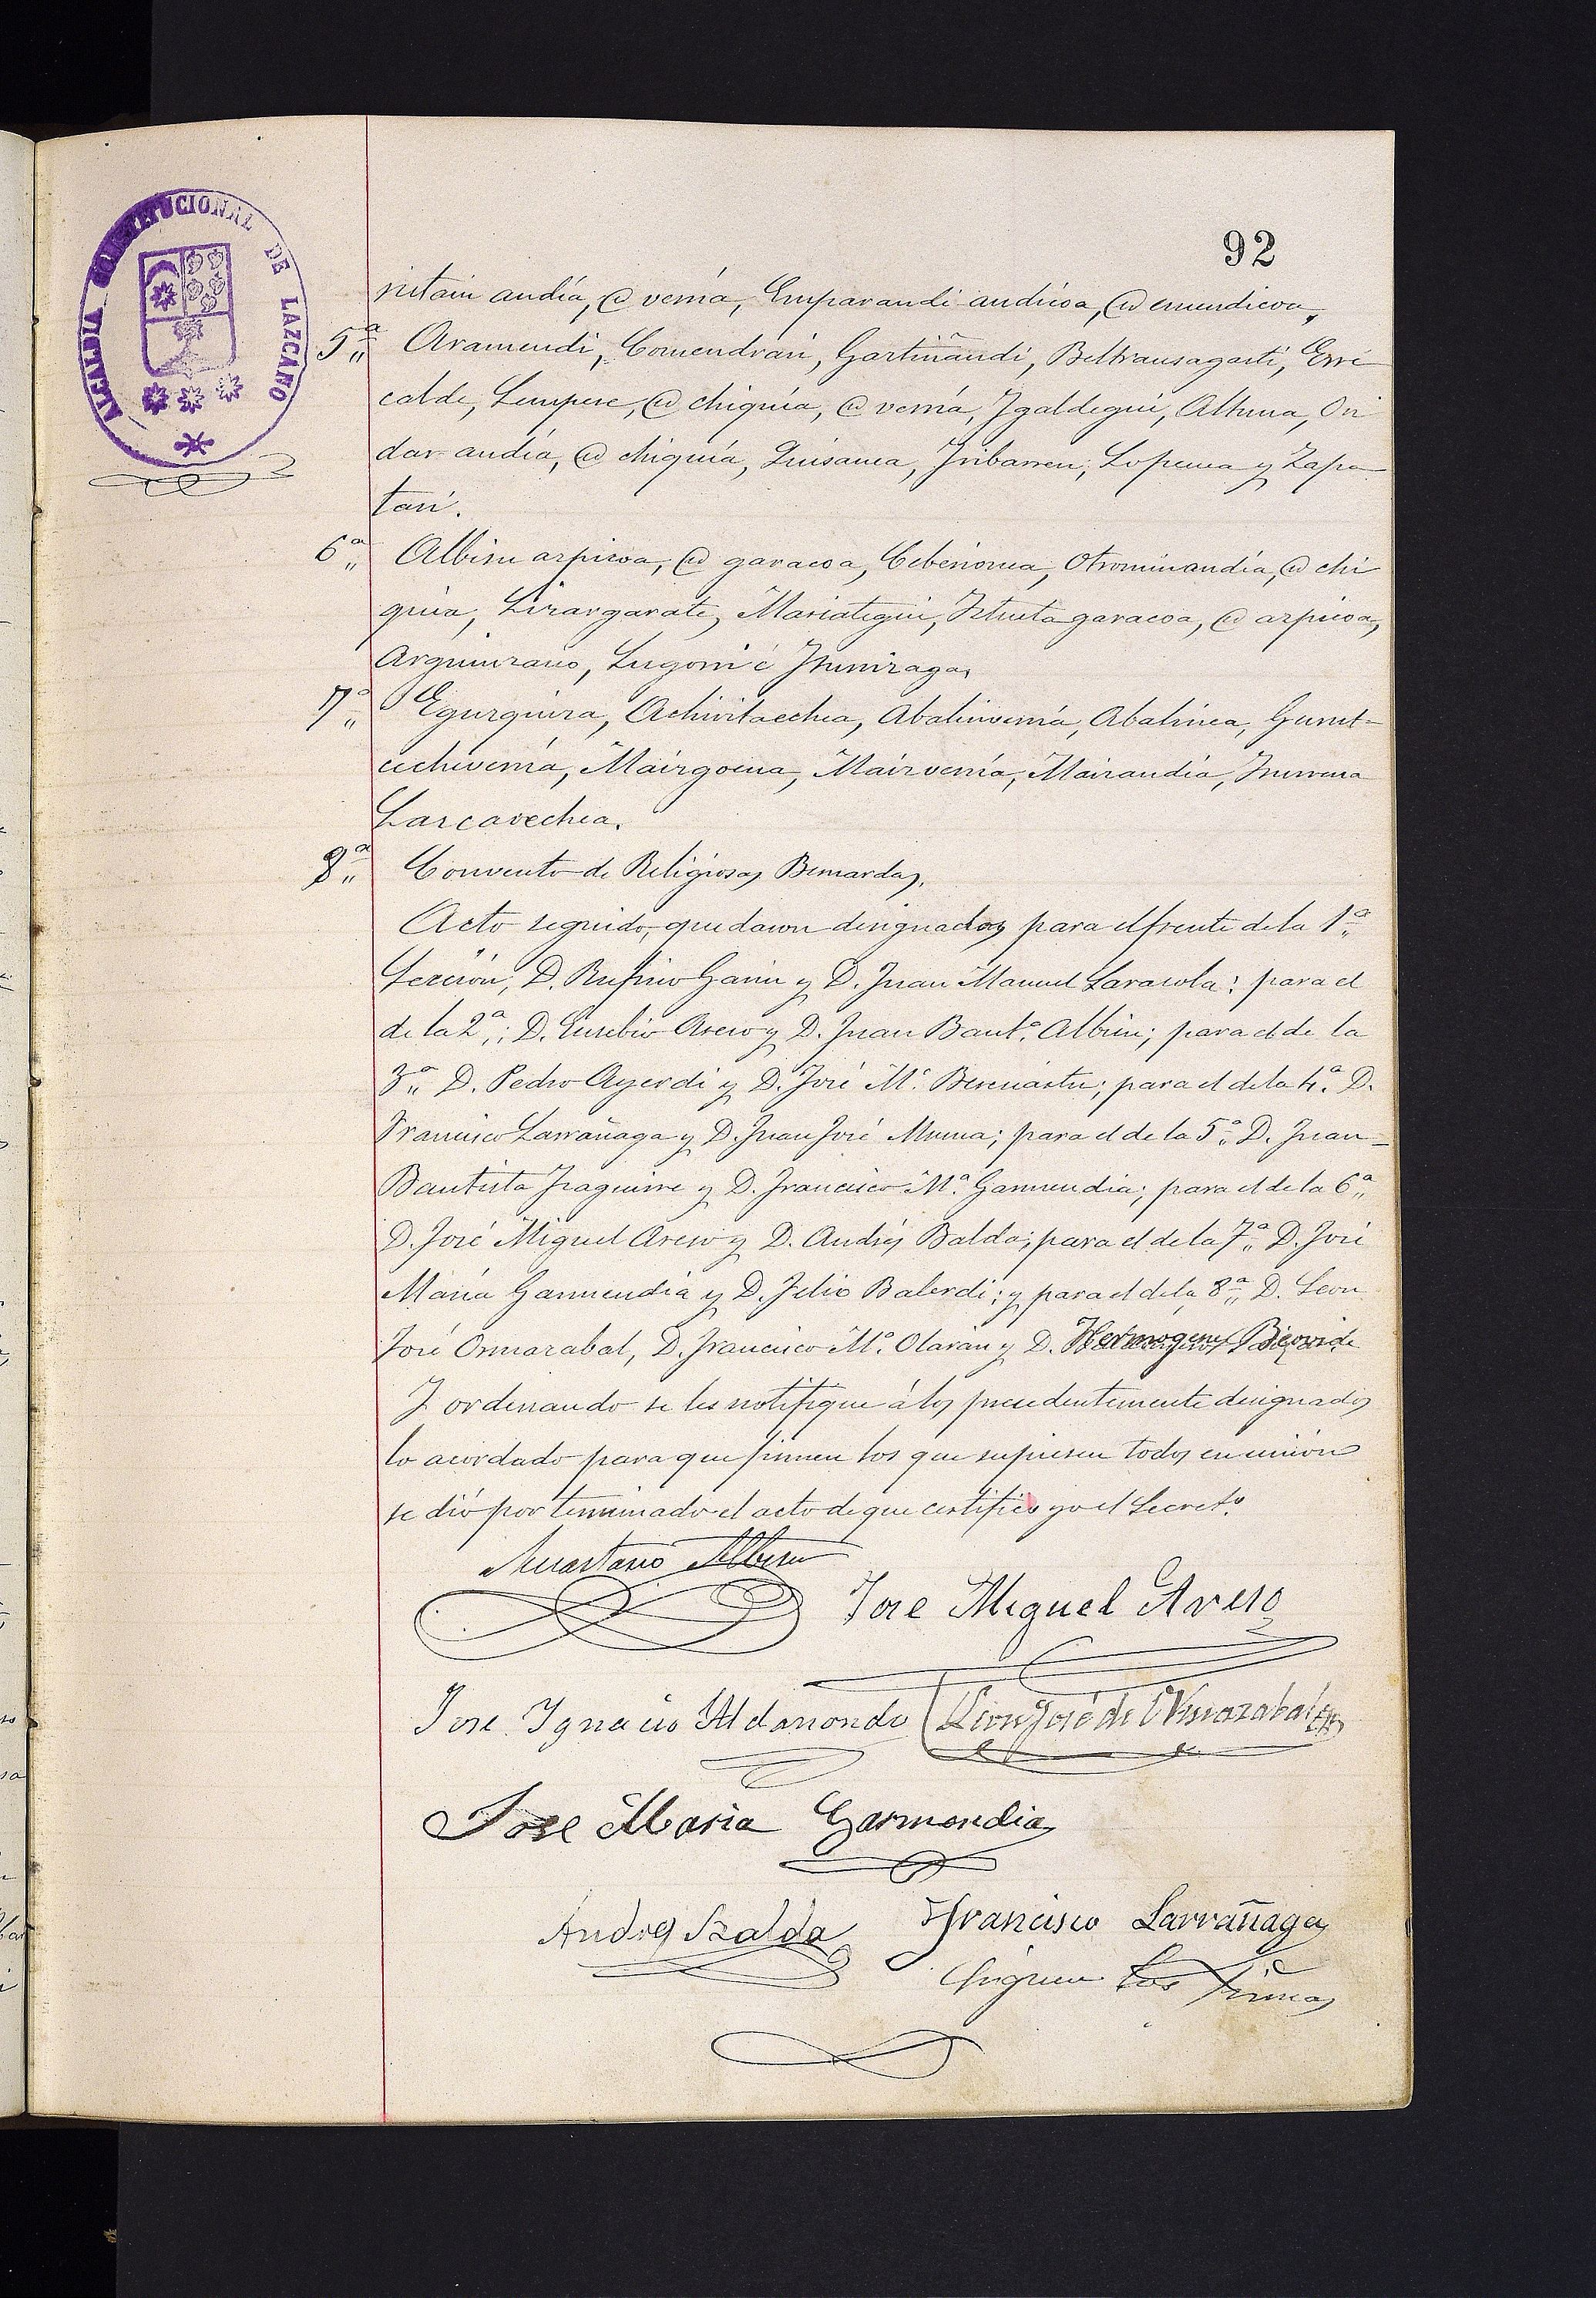 92
ALCALDIA CONSTITUCIONAL DE LAZCANO
ritain andía, @ verria, Emparandi andicoa, @ errendicoa,
5ª Aramendi, Comendrari, Gartiñandi, Beltransagasti, Erre
calde, Sempere, @ chiquia, @ verria, Igaldegui, Altuna, Ori
dar andia, @ chiquia, Iribarren, Lopema y Zapa
tari.
6ª Albisu azpicoa, @ garacoa, Otrominandia, @ chi
quia, Lizargarate, Mariategui, Iztueta garacoa, @ azpicoa,
Arguinzano, Lugorri é
7ª Egurquiza, Abalinverria, Abalinea, Gurut-
cechiverria, Mairgoena, Mairverria, Mairandia,
Lazcavechea.
8ª Convento de Religiosas Bernardas.
Acto seguido, quedaron designados para el frente de la 1ª
Sección, D. Rufino Garin y D. Juan Manuel Larasola: para el
de la 2ª; D. Eusebio Areso y D. Juan Bautª Albisu; para el de la
3ª D. Pedro Ayerdi y D. José Mª Bereciartu; para el de la 4ª D.
Francisco Larrañaga y D. Juan José Munua; para el de la 5ª D. Juan
Bautista Izaguirre y D. Francisco Mª Garmendia; para el de la 6ª
D. José Miguel Areso y D. Andrés Balda; para el de la 7ª D. José
María Garmendia y D. Felix Balerdi; y para el de la 8ª D. Leon
José Ormazabal, D. Francisco Mª Olarán y D. Hermogenes Beovide
Y ordenando se les notifique á los precedentemente designados
lo acordado para que firmen los que supiesen todos en unión
se dió por terminado el acto de que certifico yo el Secretº
Anastasio Albisu
Jose Miguel Areso
Jose Ignacio Aldasondo Leon José de Ormazabal
Jose Maria Garmendia
Andres Balda Francisco Larrañaga
Siguen las firmas